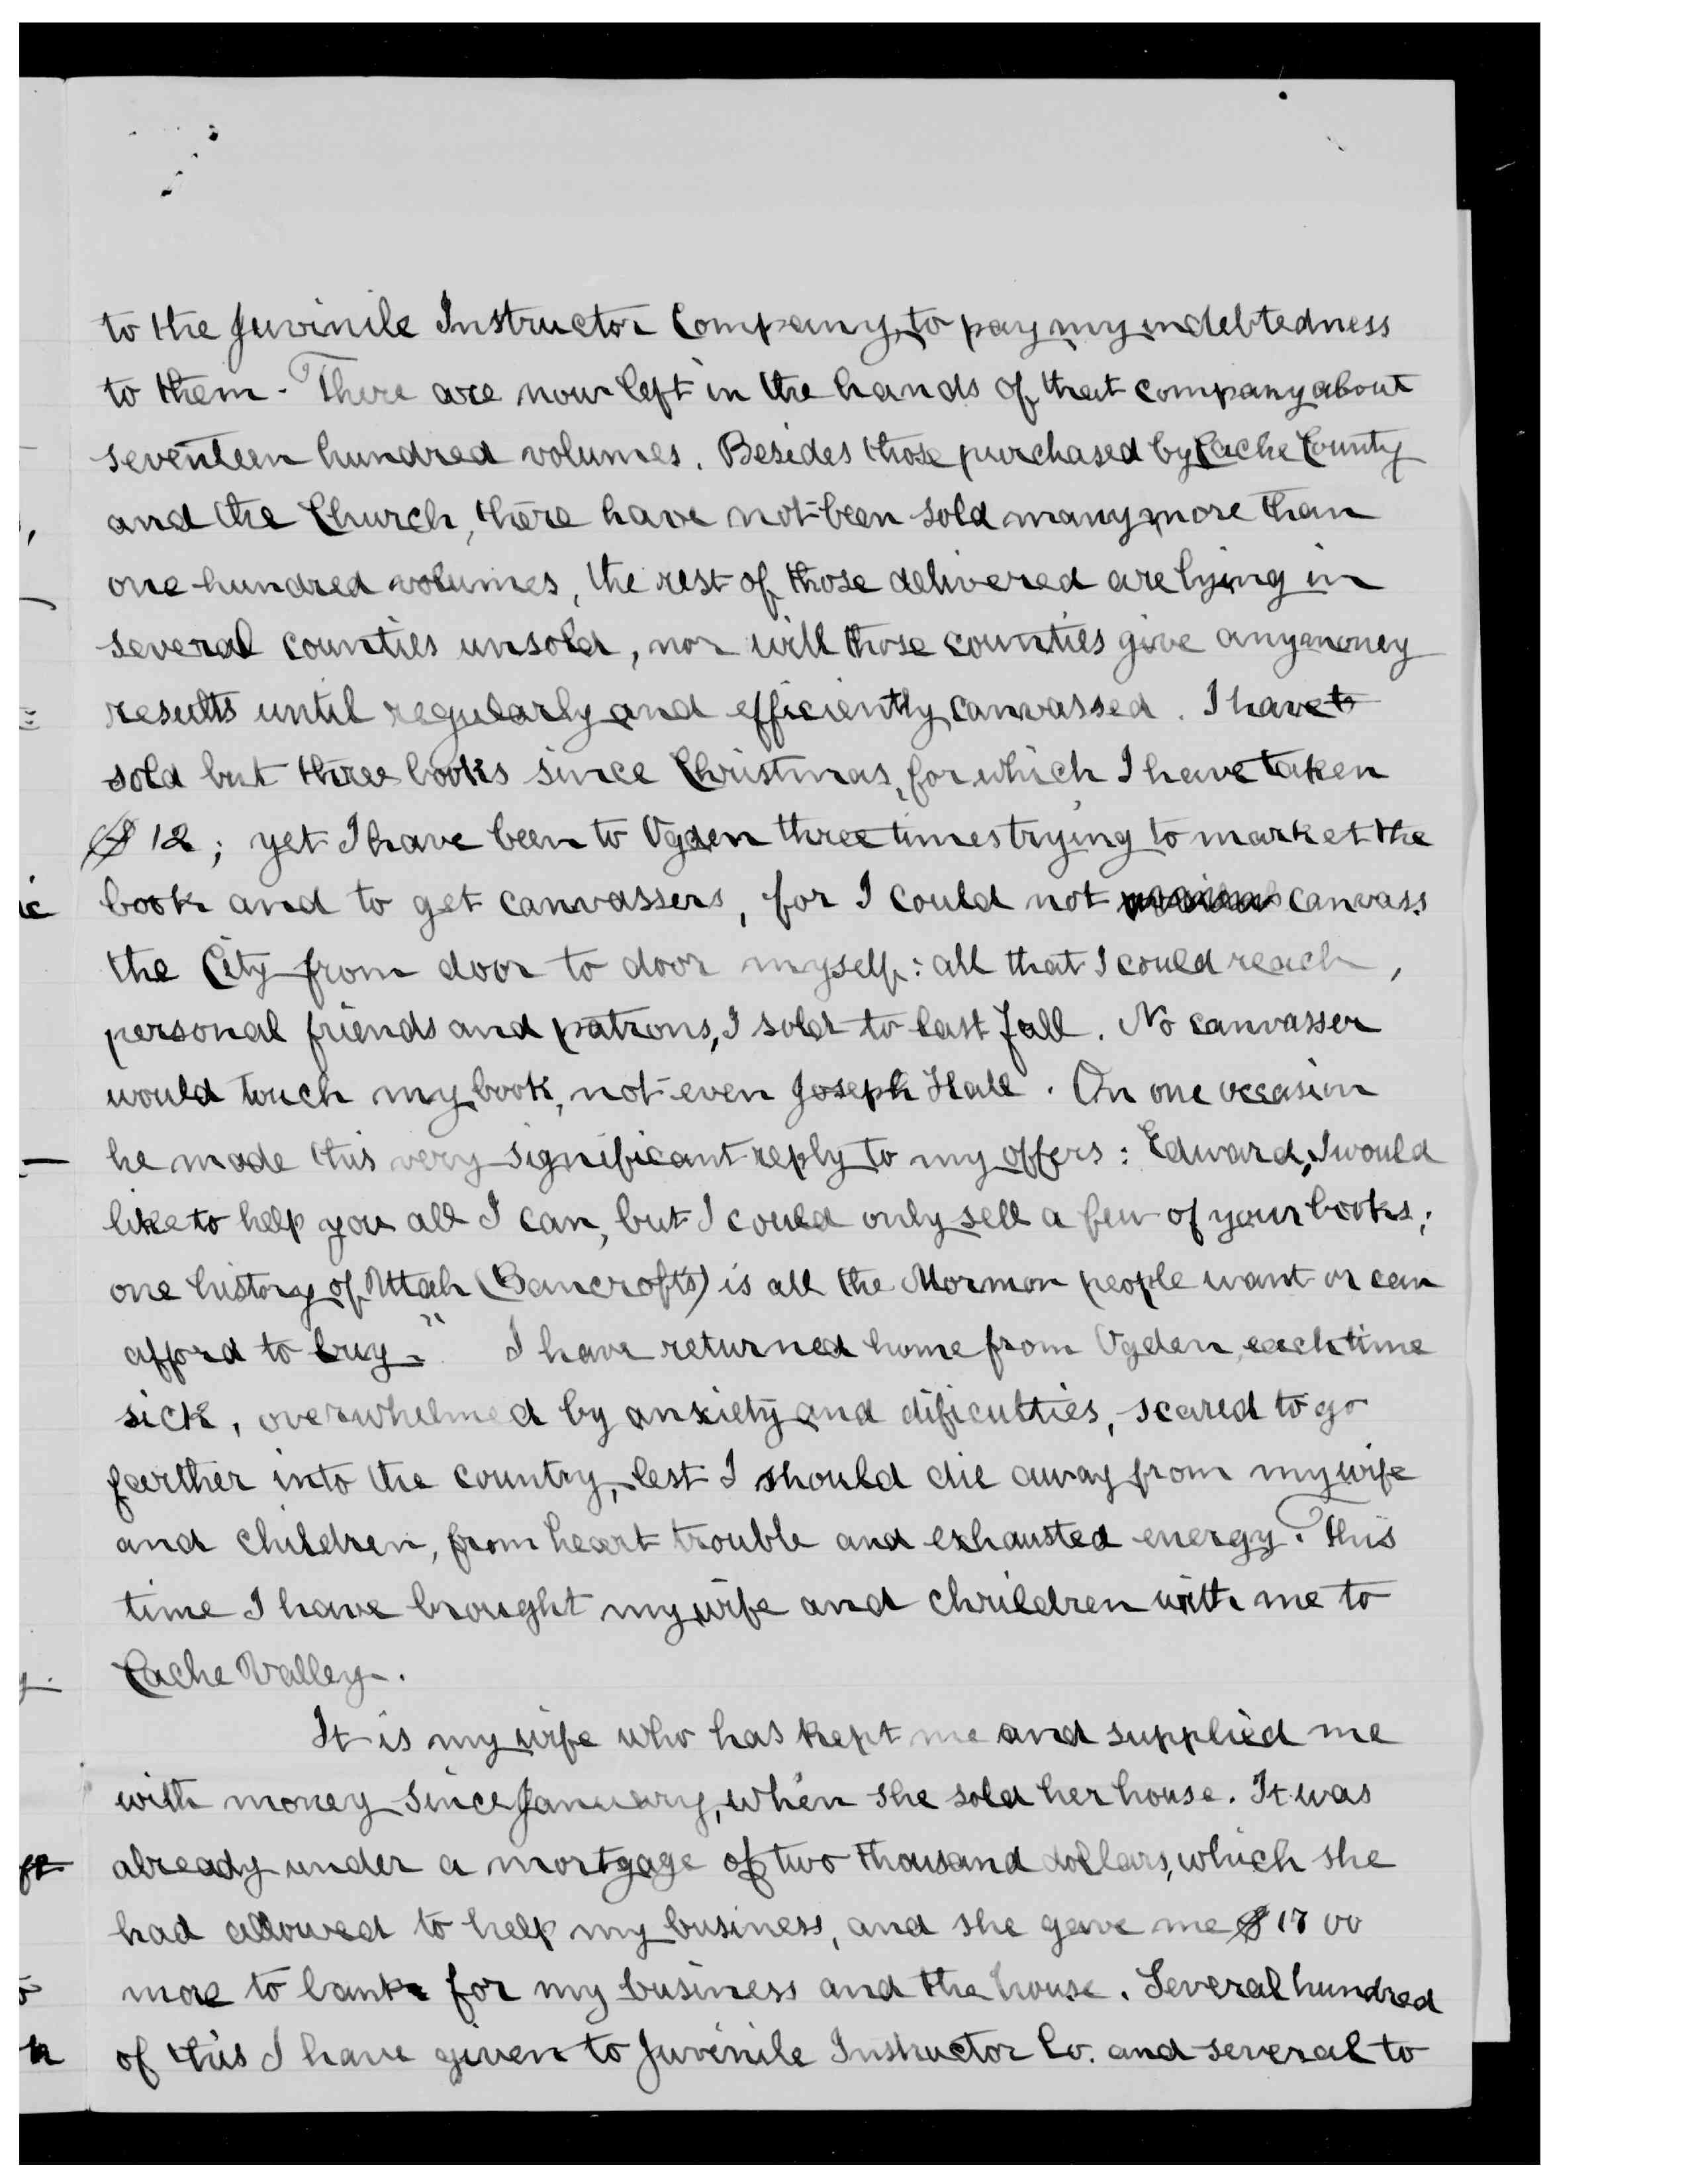 to the Juvinile Instructor Company, to pay my indebtedness
to them. There are now left in the hands of that company about
seventeen hundred volumes. Besides those purchased by Cache County
and the Church, there have not been sold many more than
one hundred volumes, the rest of those delivered are lying in
several counties unsold, nor will those counties give any money
results until regularly and efficiently canvassed. I have to
sold but three books since Christmas, for which I have taken
$12; yet I have been to Ogden three times trying to market the
book and to get canvassers, for I could not canvass
the City from door to door myself: all that I could reach,
personal friends and patrons, I sold to last Fall. No canvasser
would touch my book, not even Joseph Hall. On one occasion
he made this very significant reply to my offers: Edward, I would
like to help you all I can, but I could only sell a few of your books;
one history of Utah (Bancroft's) is all the Mormon people want or can
afford to buy." I have returned home from Ogden, each time
sick, overwhelmed by anxiety and dificulties, scared to go
farther into the country, lest I should die away from my wife
and children, from heart trouble and exhausted energy. This
time I have brought my wife and chrildren with me to
Cache Valley.
It is my wife who has kept me and supplied me
with money since January, when she sold her house. It was
already under a mortgage of two thousand dollars, which she
had allowed to help my business, and she gave me $1700
more to bank for my business and the house. Several hundred
of this I have given to Juvinile Instructor Co. and several to